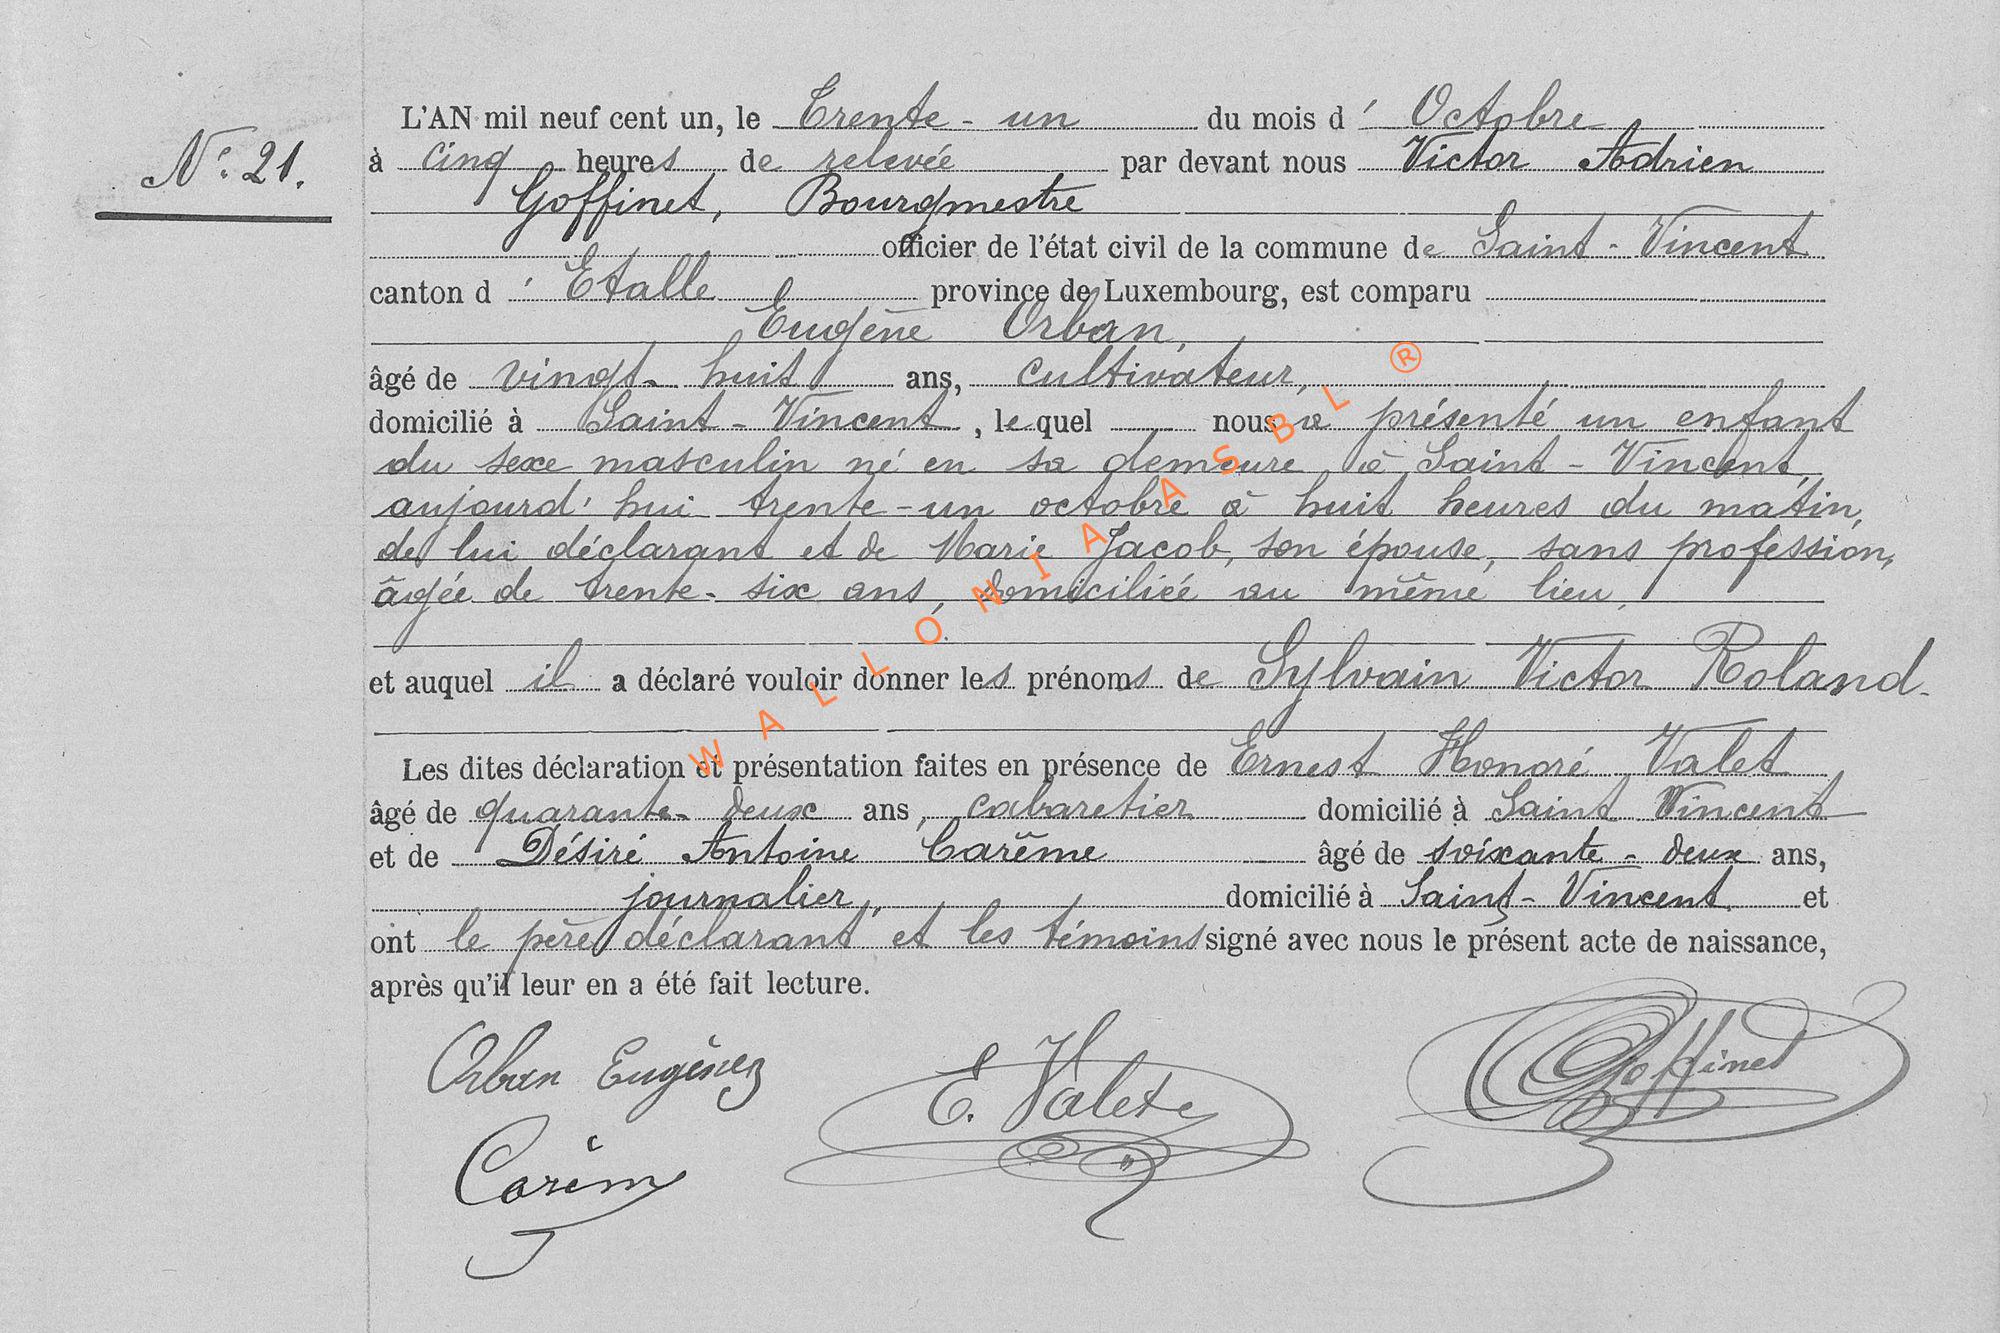 N° 21.
L'AN mil neuf cent un, le Trente - un du mois d' Octobre
à cinq heures de relevée par devant nous Victor Adrien
Goffinet, Bourgmestre
officier de l'état civil de la commune de Saint - Vincent
canton d' Etalle province de Luxembourg, est comparu
Eugène Orban,
âgé de vingt- huit ans, cultivateur,
domicilié à Saint - Vincent, lequel nous a présenté un enfant
du sexe masculin né en sa demeure à Saint - Vincent,
aujourd'hui trente - un octobre à huit heures du matin,
de lui déclarant et de Marie Jacob, son épouse, sans profession,
âgée de trente- six ans, domiciliée au même lieu,
et auquel il a déclaré vouloir donner les prénoms de Sylvain Victor Roland.
Les dites déclaration et présentation faites en présence de Ernest Honoré Valet
âgé de quarante- deux ans, cabaretier domicilié à Saint Vincent
et de Désiré Antoine Carême âgé de soixante - deux ans,
journalier, domicilié à Saint - Vincent. et
ont le père déclarant et les témoins signé avec nous le présent acte de naissance,
après qu'il leur en a été fait lecture.
Orban Eugène
E. Valet
Goffinet
Carêm
WALLONIA ASBL ®